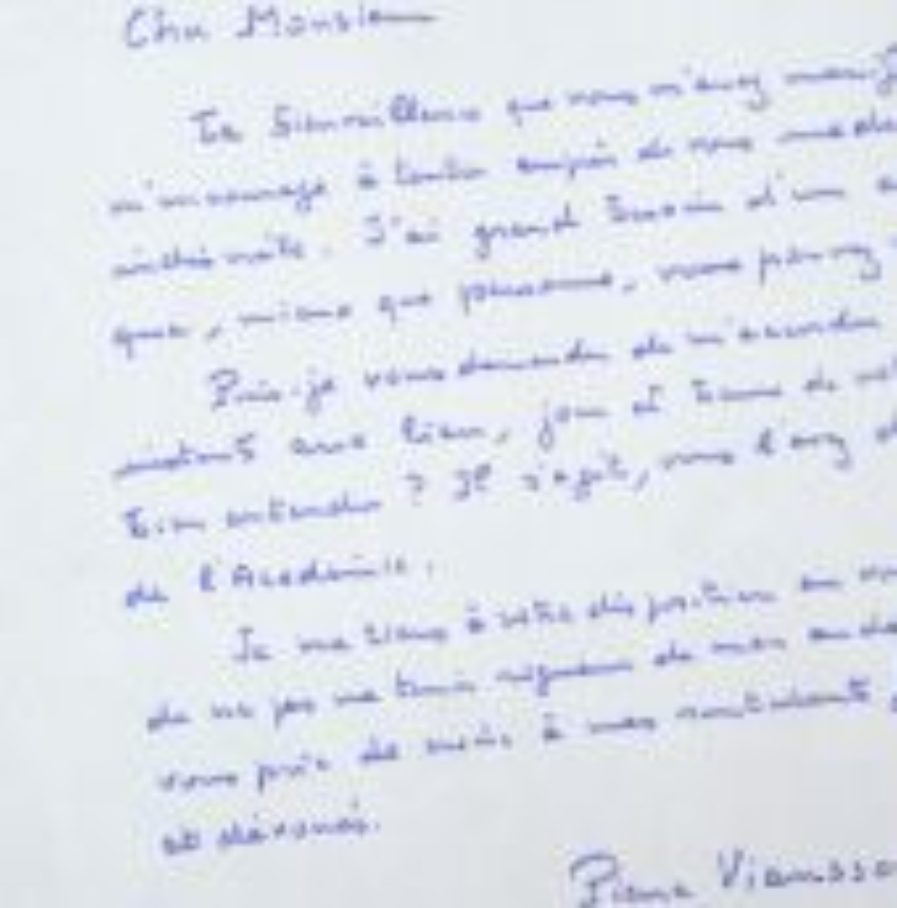 Cher Monsieur
La bienveillance que vous m'avez
m'encourage à tenter auprès de vous une
J'ai grand besoin d'un
que, mieux que personne, vous pouvez
Puis-je vous demander de m'accorder
instant aux lieu, jour et heure de
bien entendu ? Il s'agit, vous l'avez
de l'Académie.
Je me tiens à votre disposition en vous
de ne pas me tenir rigueur de mon
vous prie de croire à mes sentiments
et dévoués.
Pierre